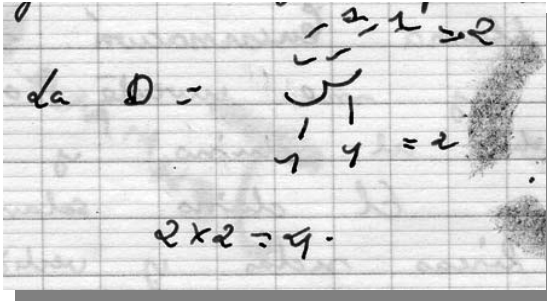 1 1 = 2
La D =
1 1 = 2
2 x 2 = 4.